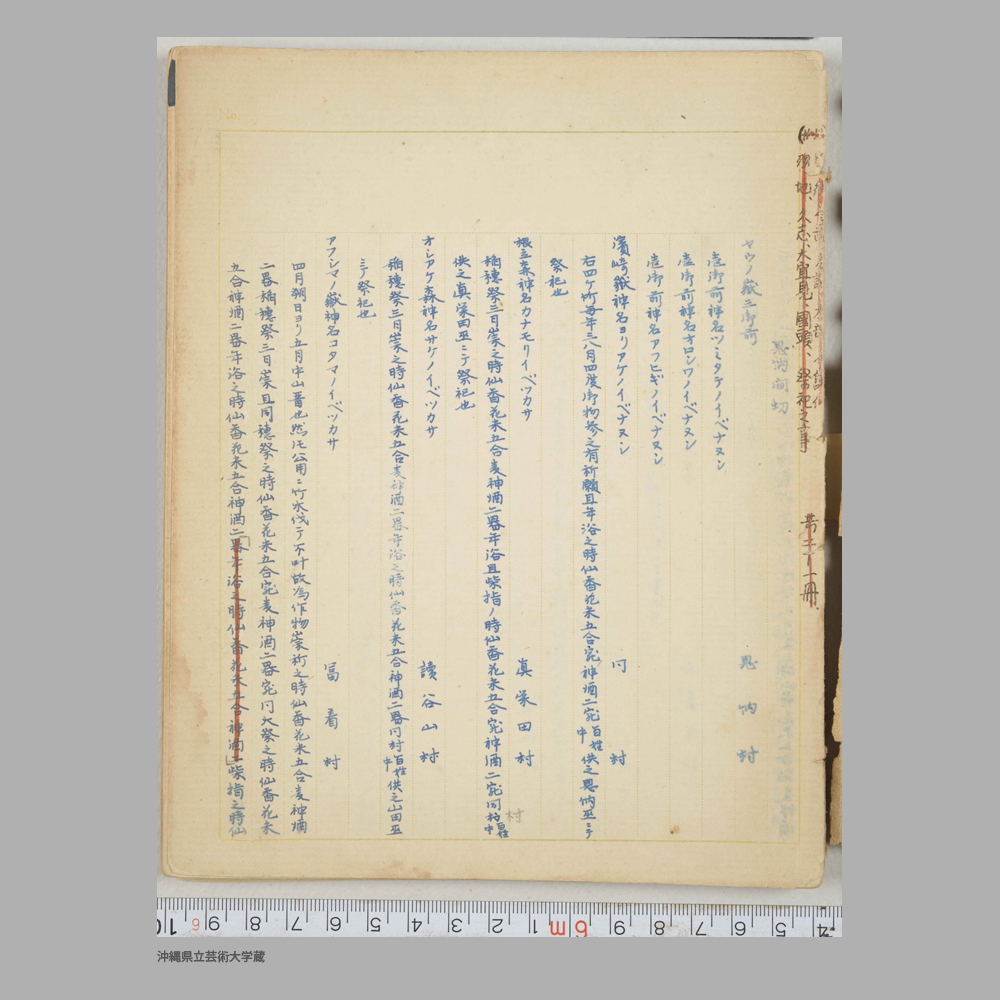 恩納間切
ヤウノ嶽三御前　恩納村
壱御前神名ツミタテノイベナヌシ
壱御前神名オロシワノイベナヌシ
壱御前神名アフヒギノイベナヌシ
濱崎嶽神名ヨリアゲノイベナヌシ　同村
右四ケ所毎年三八月四度御物参之有祈願且年浴之時仙香花米五合宛神酒二宛百姓中供之恩納巫ニテ
祭祀也
根立森神名カナモリイベツカサ　真栄田村
稲穂祭三日崇之時仙香花米五合麦神酒二器年浴且柴指ノ時仙香花米五合宛神酒二宛同村百姓中
供之真栄田巫ニテ祭祀也
オシアケ森神名サケノイベツカサ　讀谷山村
稲穂祭三月崇之時仙香花米五合麦神酒二器年浴之時仙香花米五合神酒二器同村百姓中供之山田巫
ニテ祭祀也
アフシマノ嶽神名コタマノイベツカサ　冨着村
四月朔日ヨリ五月中山畱也然モ公用ニ竹木伐テ不叶故為作物崇祈之時仙香花米五合麦神酒
二器稲穂祭三日崇且同穂祭之時仙香花米五合宛麦神酒二器宛同大祭之時仙香花米
五合神酒二器年浴之時仙香花米五合神酒二「器年浴之時仙香花米五合神酒二」柴指之時仙
村
久志、大宜見、國頭、祭祀之事
No.
10 9 8 7 6 5 4 3 2 1 6m 9 8 7 6 5
沖縄県立芸術大学蔵